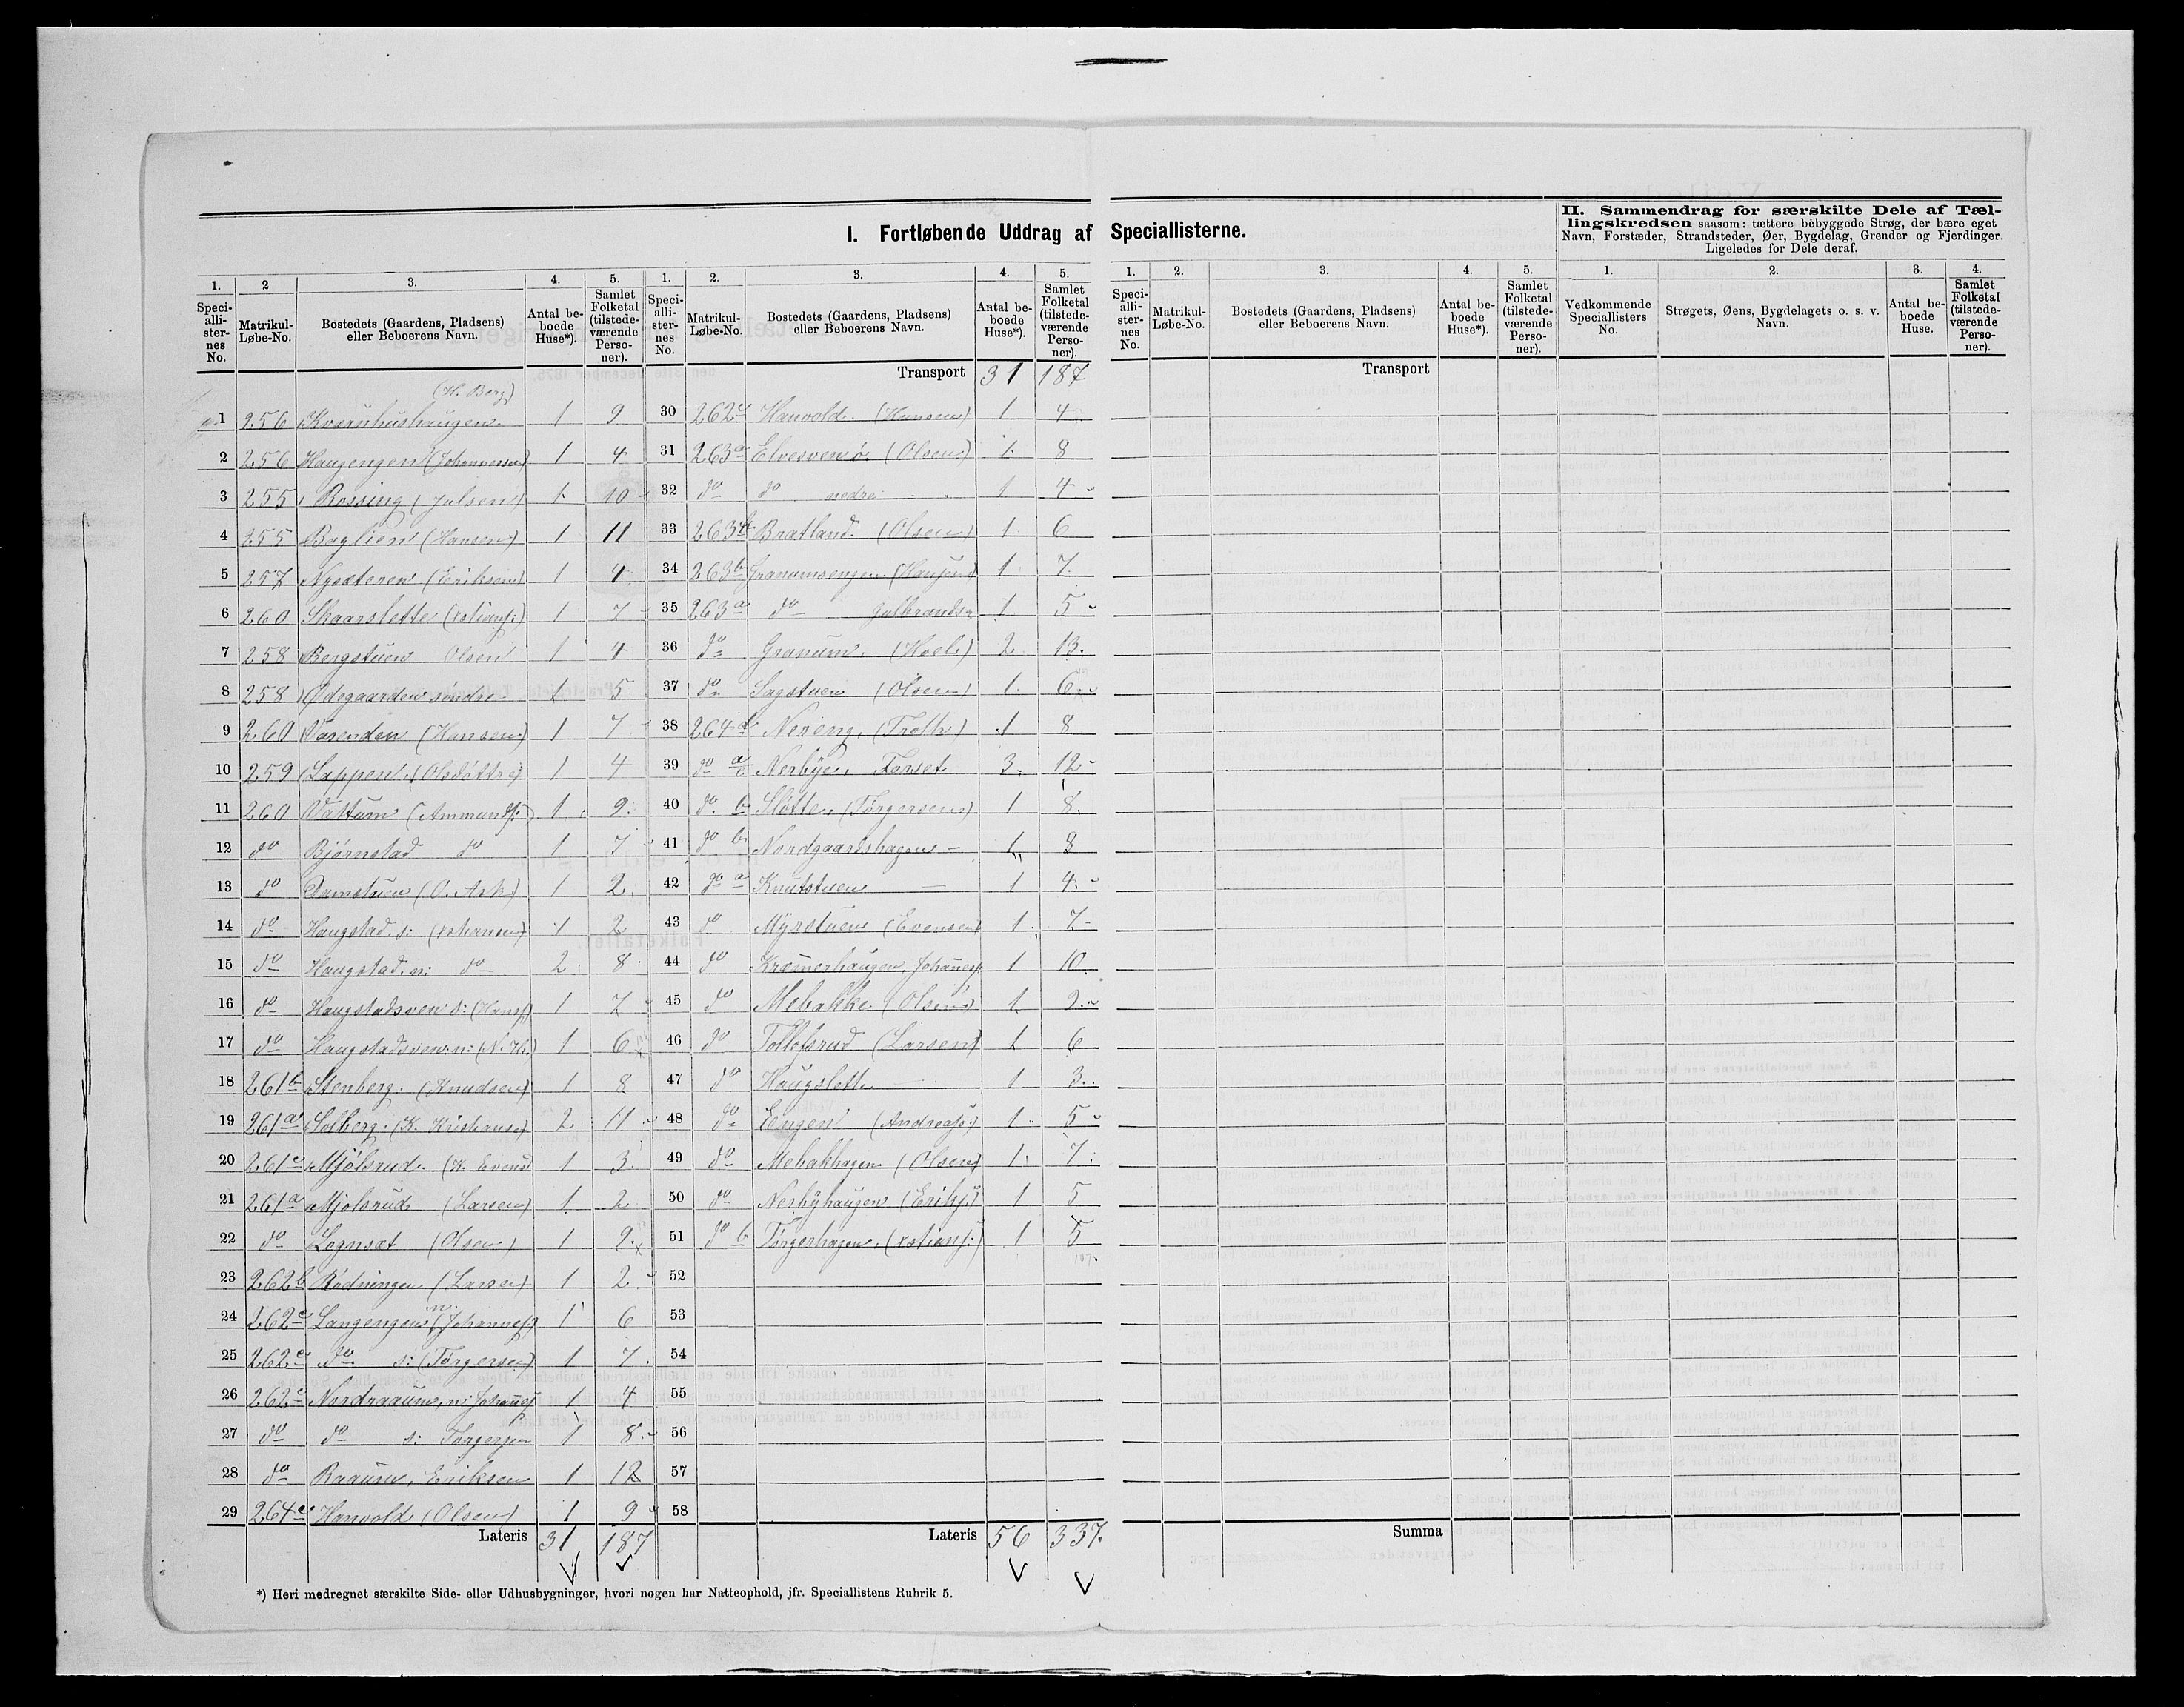 I. Fortløbende Uddrag af Speciallisterne.
II. Sammendrag for særskilte Dele af Tæl-
lingskredsen saasom: tættere bebyggede Strøg, der bære eget
Navn, Forstæder, Strandsteder, Øer, Bygdelag, Grender og Fjerdinger.
Ligeledes for Dele deraf.
1. 2 3. 4. 5. 1. 2. 3. 4. 5. 1. 2. 3. 4. 5. 1. 2. 3. 4.
Speci-alli-ster-nes No. Matrikul-Løbe-No. Bostedets (Gaardens, Pladsens) eller Beboerens Navn. Antal be-boede Huse*). Samlet Folketal (tilstede-værende Perso-ner).
Speci-alli-ster-nes No. Matrikul-Løbe-No. Bostedets (Gaardens, Pladsens) eller Beboerens Navn. Antal be-boede Huse*). Samlet Folketal (tilstede-værende Perso-ner).
Speci-alli-ster-nes No. Matrikul-Løbe-No. Bostedets (Gaardens, Pladsens) eller Beboerens Navn. Antal be-boede Huse*). Samlet Folketal (tilstede-værende Perso-ner).
Vedkommende Speciallisters No. Strøgets, Øens, Bygdelagets o. s. v. Navn. Antal be-boede Huse. Samlet Folketal (tilstede-værende Perso-ner).
(H. Berg)
1 256 Kværnhushaugen 1 9
2 256 Haugengen (Johannessen) 1 4
3 255 Rossing (Julsen) 1 10
4 255 Baglien (Hansen) 1 11
5 257 Nysæteren (Eriksen) 1 4
6 260 Skaarslette (Kstians:) 1 7
7 258 Bergstuen Olsen 1 4
8 258 Ødegaarden søndre 1 5
9 260 Vasenden (Hansen) 1 7
10 259 Lappen (Olsdatter) 1 4
11 260 Vattum (Ammunds:) 1 9
12 do Bjørnstad do 1 7
13 do Damstuen (O. Ask) 1 2
14 do Haugstad s: (Kstiansen) 1 2
15 do Haugstad n: do 2 8
16 do Haugstadsveen s: (Hans:) 1 7
17 do Haugstadsveen n: (N. H.) 1 6
18 261b Stenberg (Knudsen) 1 8
19 261a Solberg (K. Kristiansen) 2 11
20 261c Mjölsrud (K. Evens) 1 3
21 261a Mjølsrud (Larsen) 1 2
22 do Lognsæt (Olsen) 1 9
23 262b Rødningen (Larsen) 1 2
24 262c Langengen n. (Johannes:) 1 6
25 262c do s: (Torgersen) 1 7
26 262c Nordraaum, n: Johannes: 1 4
27 do do s: Torgersen 1 8
28 do Raaum, Eriksen 1 12
29 264c Hanvold (Olsen) 1 9
Lateris 31 187
Transport 31 187
30 262c Hanvold (Hansen) 1 4
31 263a Elvesveen ø. (Olsen) 1 8
32 do do nedre 1 4
33 263b Bratland (Olsen) 1 6
34 263b Granumsengen (Hansen) 1 7
35 263a do Gulbrands: 1 5
36 do Granum (Hoel) 2 13
37 do Sagstuen (Olsen) 1 6
38 264d Nereng, (Troth) 1 8
39 do a Nerbye, Forset 3 12
40 do b Slötte, (Torgersen) 1 8
41 do b Nordgaardshagen 1 8
42 do a Knutstuen 1 4
43 do Myrstuen (Evensen) 1 7
44 do Kræmerhaugen, Johannes: 1 10
45 do Mebakke (Olsen) 1 2
46 do Tollefsrud (Larsen) 1 6
47 do Haugslette 1 3
48 do Engen (Andreas:) 1 5
49 do Mebakhagen (Olsen) 1 7
50 do Nerbyhaugen (Eriks:) 1 5
51 do b Torgerhagen, (Kstians:) 1 5
52
53
54
55
56
57
58
Lateris 56 337
Transport
Summa
*) Heri medregnet særskilte Side- eller Udhusbygninger, hvori nogen har Natteophold, jfr. Speciallistens Rubrik 5.